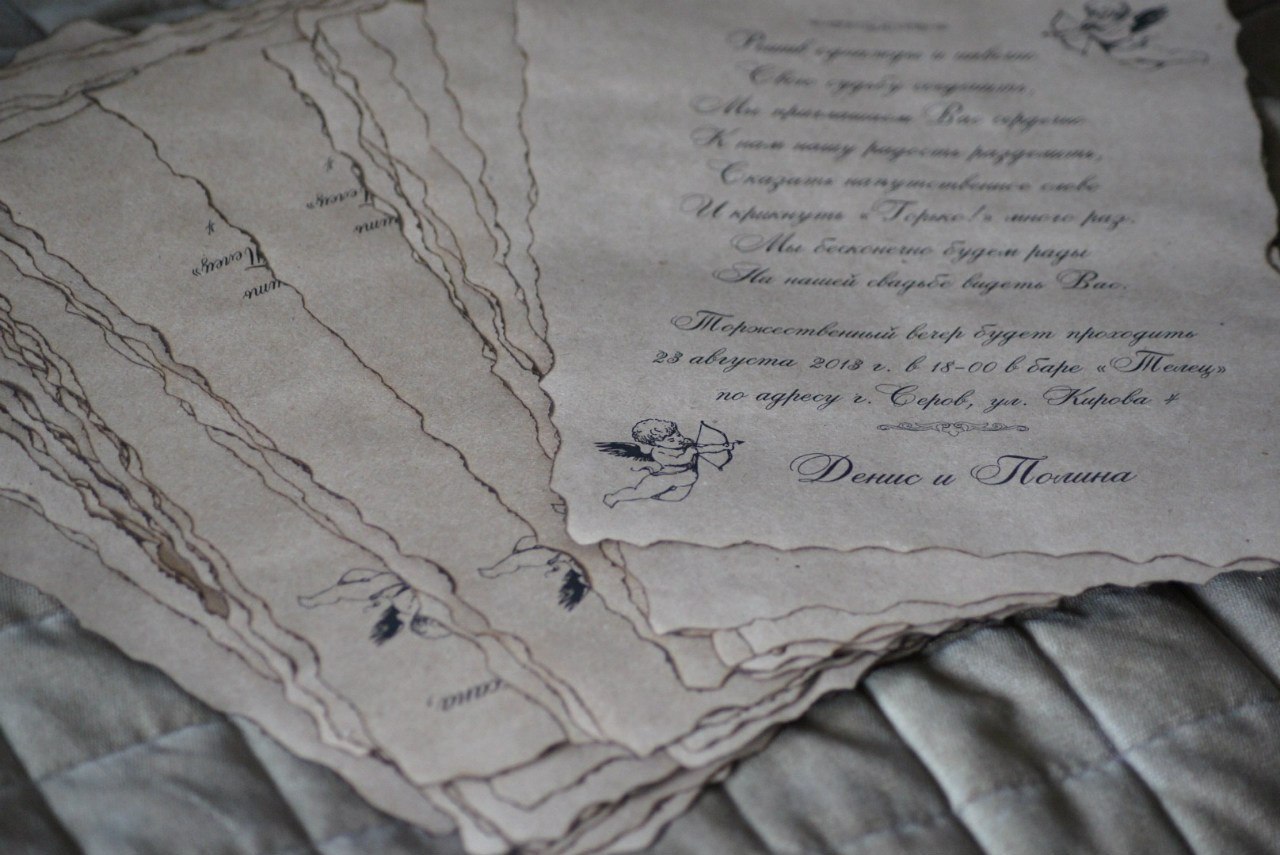 Решив однажды и навечно
Свою судьбу соединить,
Мы приглашаем Вас сердечно
К нам нашу радость разделить,
Сказать напутственное слово
И крикнуть «Горько!» много раз.
Мы бесконечно будем рады
На нашей свадьбе видеть Вас.
Торжественный вечер будет проходить
23 августа 2013 г. в 18-00 в баре «Телец»
по адресу г. Серов, ул. Кирова 4
Денис и Полина
ить
Телец»
4
ить
Телец»
4